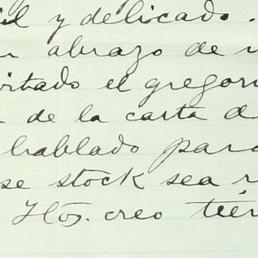 y delicado.
abrazo de
el gregori
de la carta d
hablado para
se stock sea
Hoz. creo tien